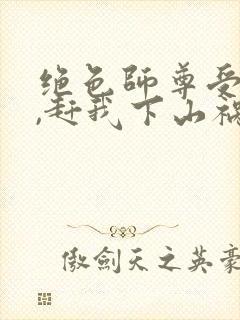 绝色師尊受
,赶我下山禍
傲劍天之英豪